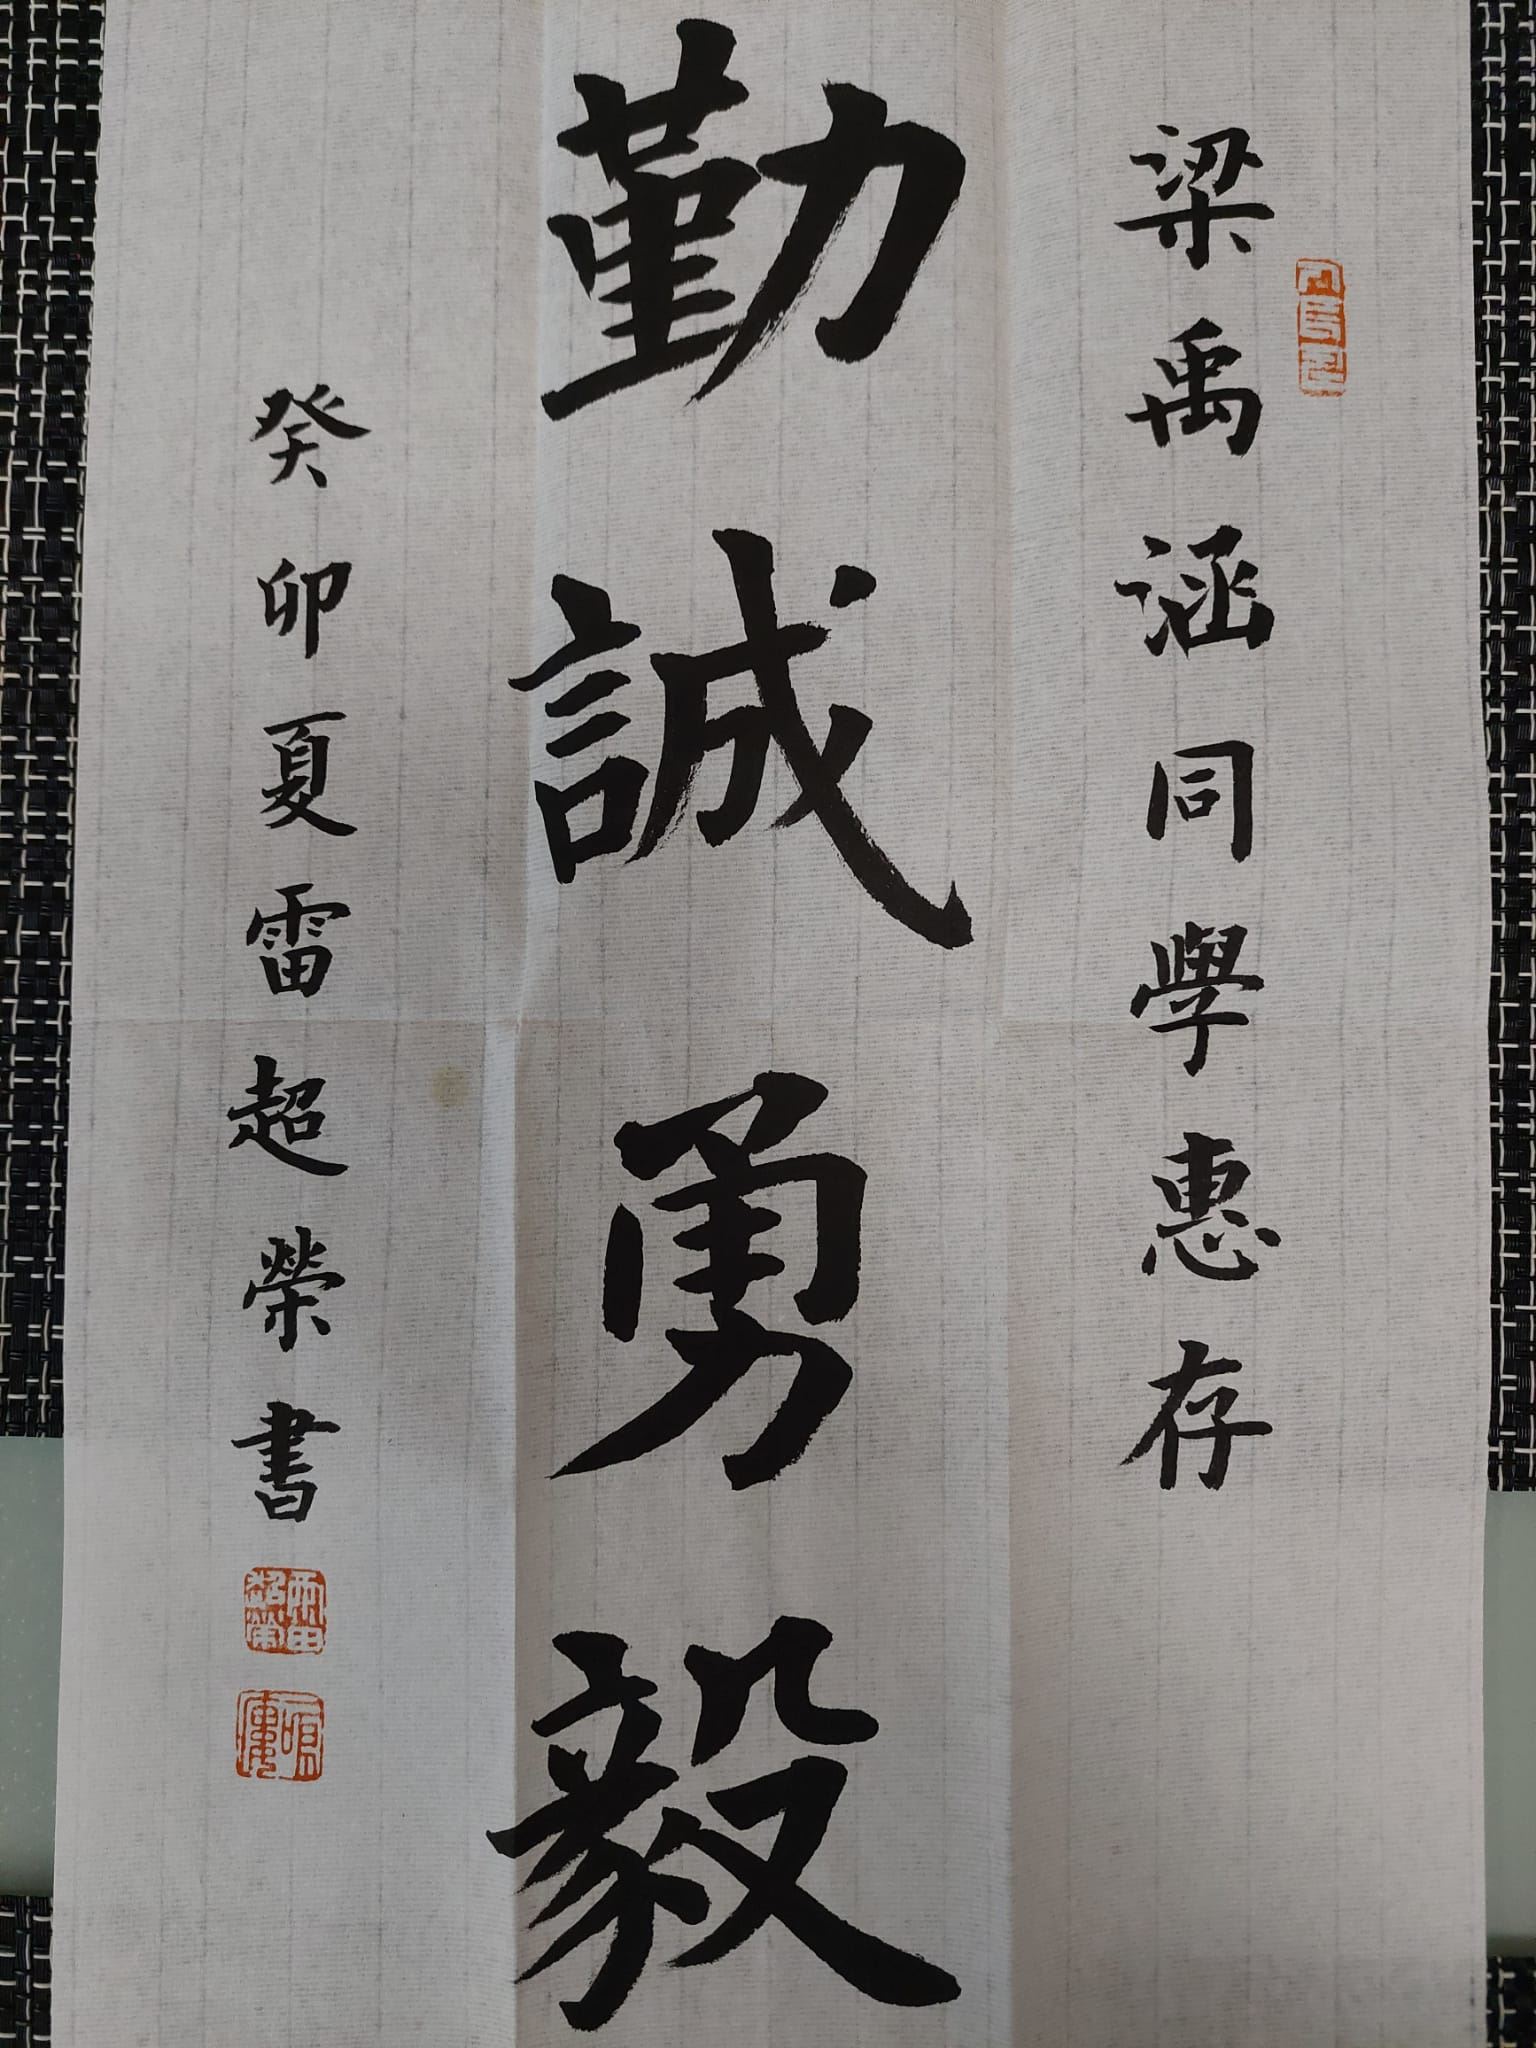 梁禹涵同學惠存
勤誠勇毅
癸卯夏雷超榮書
雷超榮